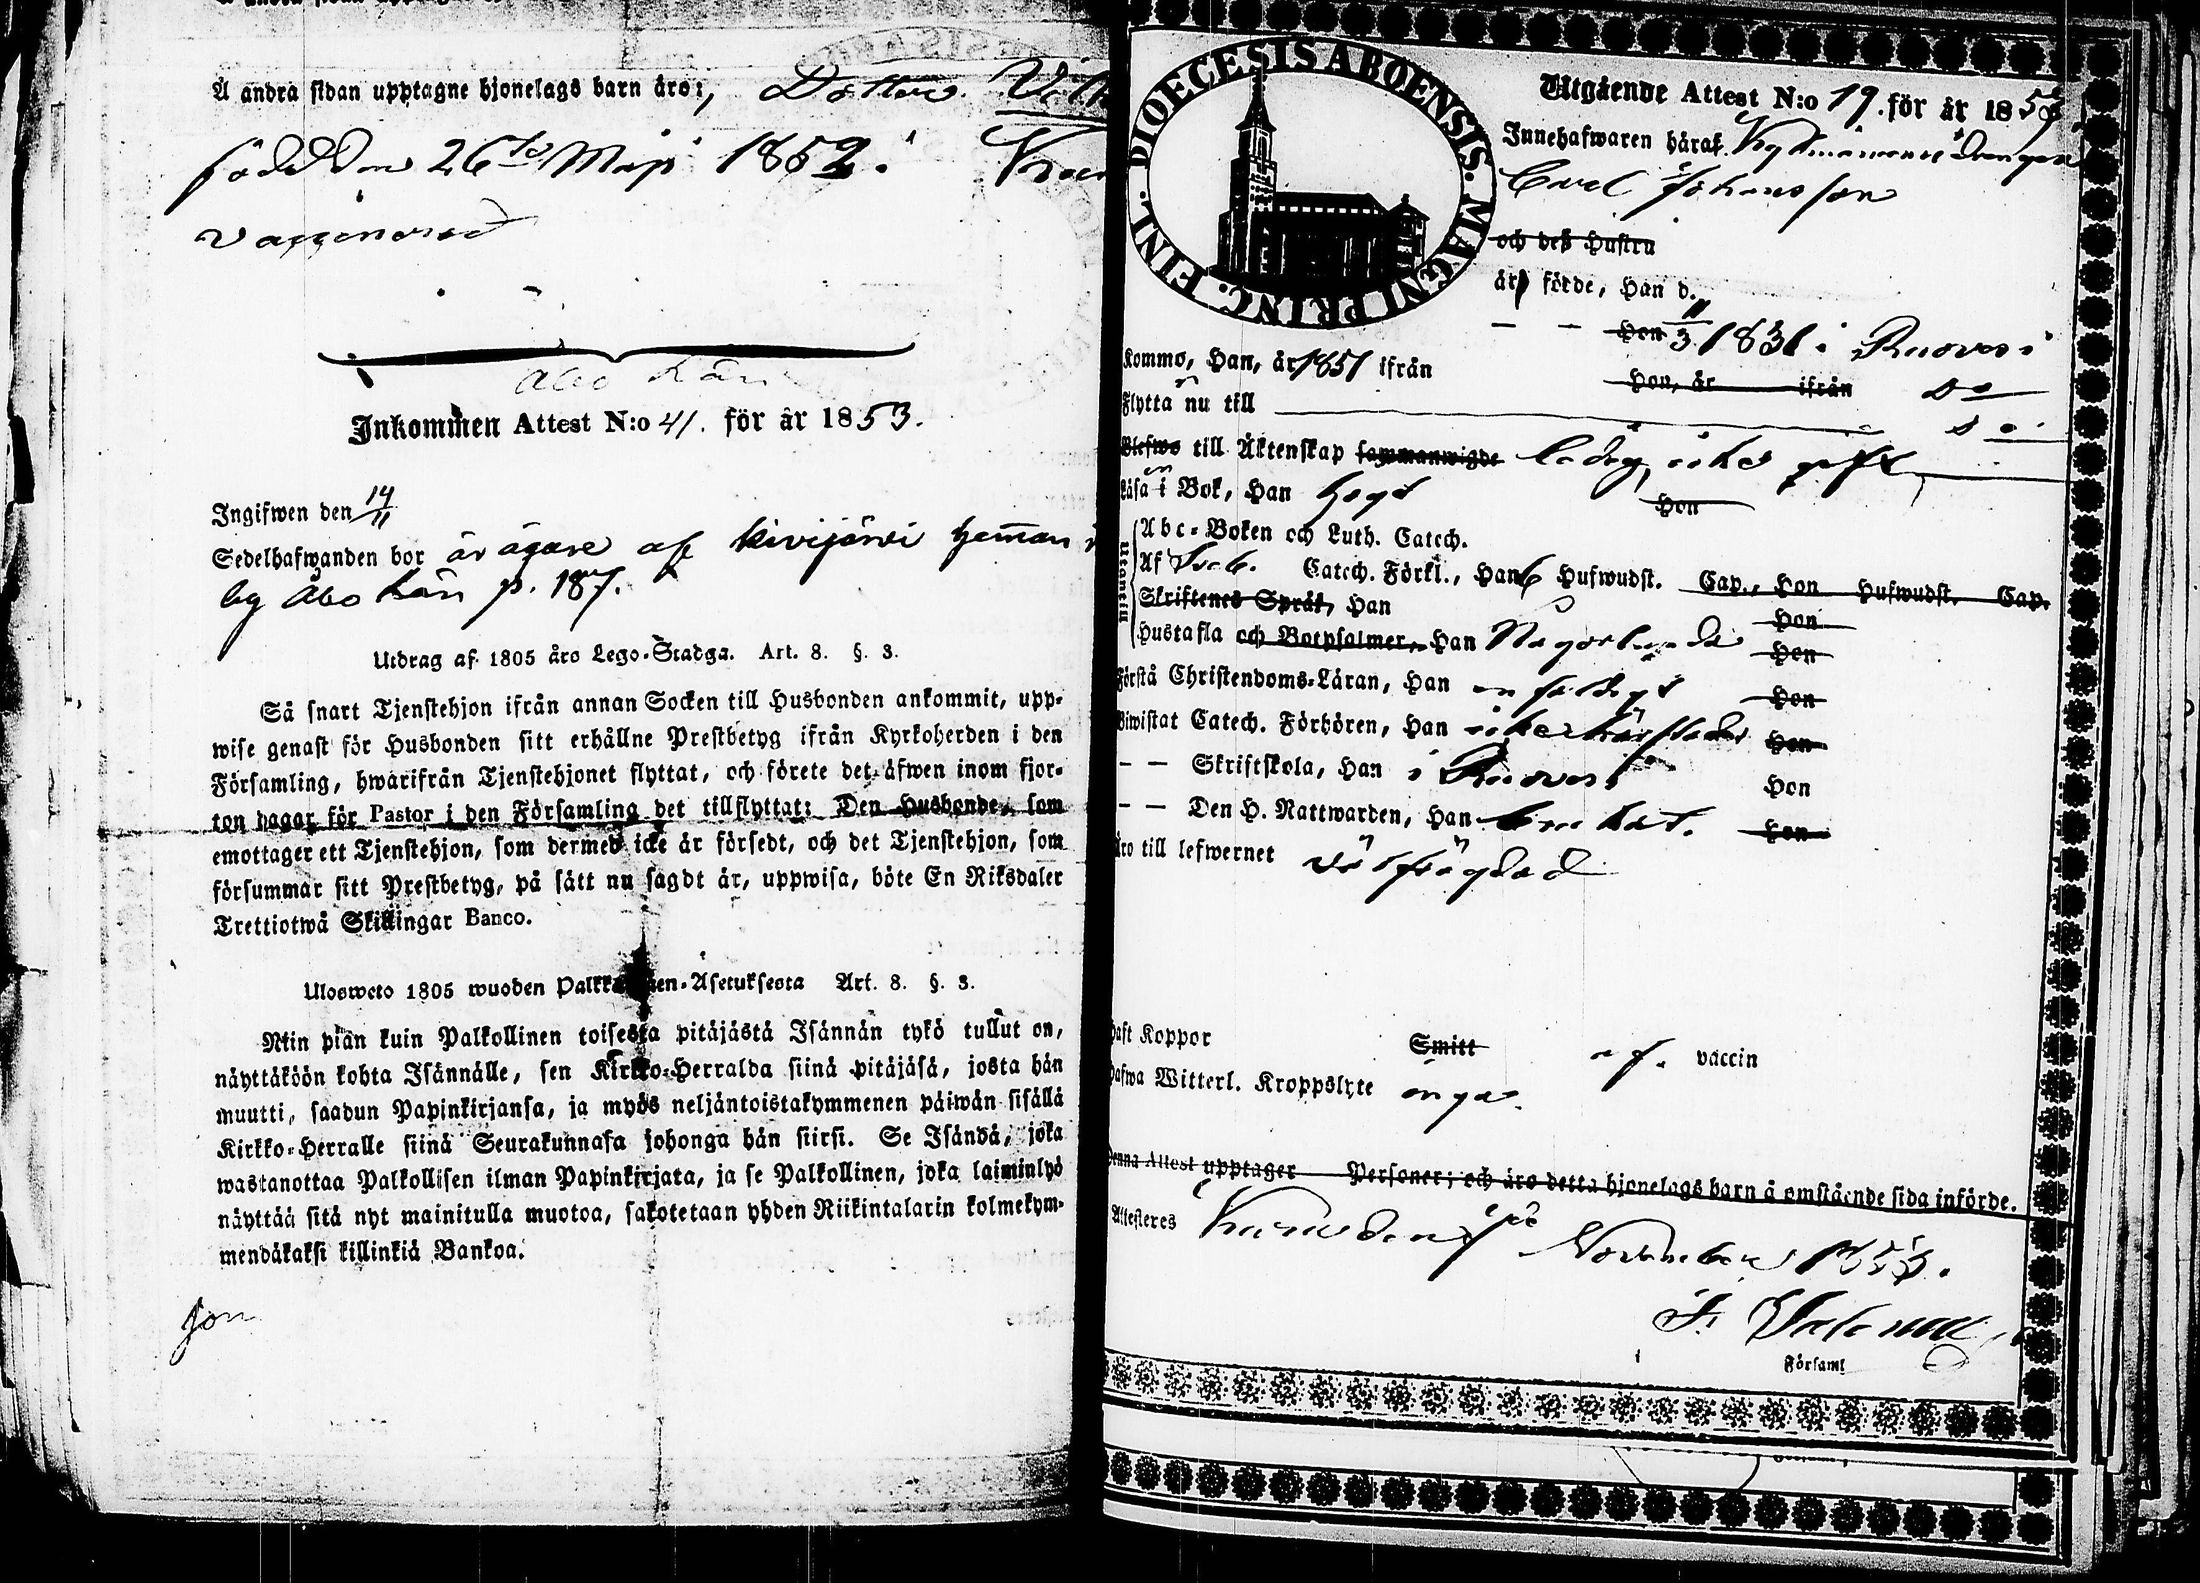 Å andra sidan upptagne hjonelags barn äro:, Dotter
född den 26te Maji 1852.
vaccinerad
Åbo Län
Inkommen Attest N:o 41. för år 1853.
Ingifwen den 14/11
Sedelhafwanden bor är ägare af Kivijärvi heman
by Åbo Län p. 187.
Utdrag af 1805 års Lego-Stadga. Art. 8. §. 3.
Så snart Tjenstehjon ifrån annan Socken till Husbonden ankommit, upp-
wise genast för Husbonden sitt erhållne Prestbetyg ifrån Kyrkoherden i den
Församling, hwarifrån Tjenstehjonet flyttat, och förete det äfwen inom fjor-
ton dagar för Pastor i den Församling det tillflyttat: Den Husbonde, som
emottager ett Tjenstehjon, som dermed icke är försedt, och det Tjenstehjon, som
försummar sitt Prestbetyg, på sätt nu sagdt är, uppwisa, böte En Riksdaler
Trettiotwå Skillingar Banco.
Ulosweto 1805 wuoden Palkkalisten-Asetuksesta Art. 8. §. 3.
Niin pian kuin Palkollinen toisesta pitäjästä Isännän tykö tullut on,
näyttäköön kohta Isännälle, sen Kirkko-Herralda siinä pitäjäsä, josta hän
muutti, saadun Papinkirjansa, ja myös neljäntoistakymmenen päiwän sisällä
Kirkko-Herralle siinä Seurakunnasa johonga hän siirsi. Se Isändä, joka
wastanottaa Palkollisen ilman Papinkirjata, ja se Palkollinen, joka laiminlyö
näyttää sitä nyt mainitulla muotoa, sakotetaan yhden Riikintalarin kolmekym-
mendäkaksi killinkiä Bankoa.
DIOECESIS ABOENSIS. MAGNI PRINC. FINL.
Utgående Attest N:o 19. för år 1853
Innehafwaren häraf drängen
Carl Johansson
och deß Hustru
är födde, Han d. 11/3 1831 i Ruovesi
— — Hon
Kommo, Han, år 1851 ifrån Hon, år ifrån do
Flytta nu till do
Blefwo till Äktenskap sammanwigde Ledig, icke gift
Läsa i Bok, Han Hon
Utantill
Abc-Boken och Luth. Catech.
Af Sveb. Catech. Förkl., Han 6 Hufwudst. Cap., Hon Hufwudst. Cap.
Skriftenes Språk, Han Hon
Hustafla och Botpsalmer, Han Någorlunda Hon
Förstå Christendoms-Läran, Han Hon
Biwistat Catech. Förhören, Han Hon
— — Skriftskola, Han i Ruovesi Hon
— — Den H. Nattwarden, Han Hon
Äro till lefwernet välfrägdad
Haft Koppor Smitt af. vaccin
Hafwa Witterl. Kroppslyte inga.
Denna Attest upptager Personer; och äro detta hjonelags barn å omstående sida införde.
Attesteres November 1853.
Församl